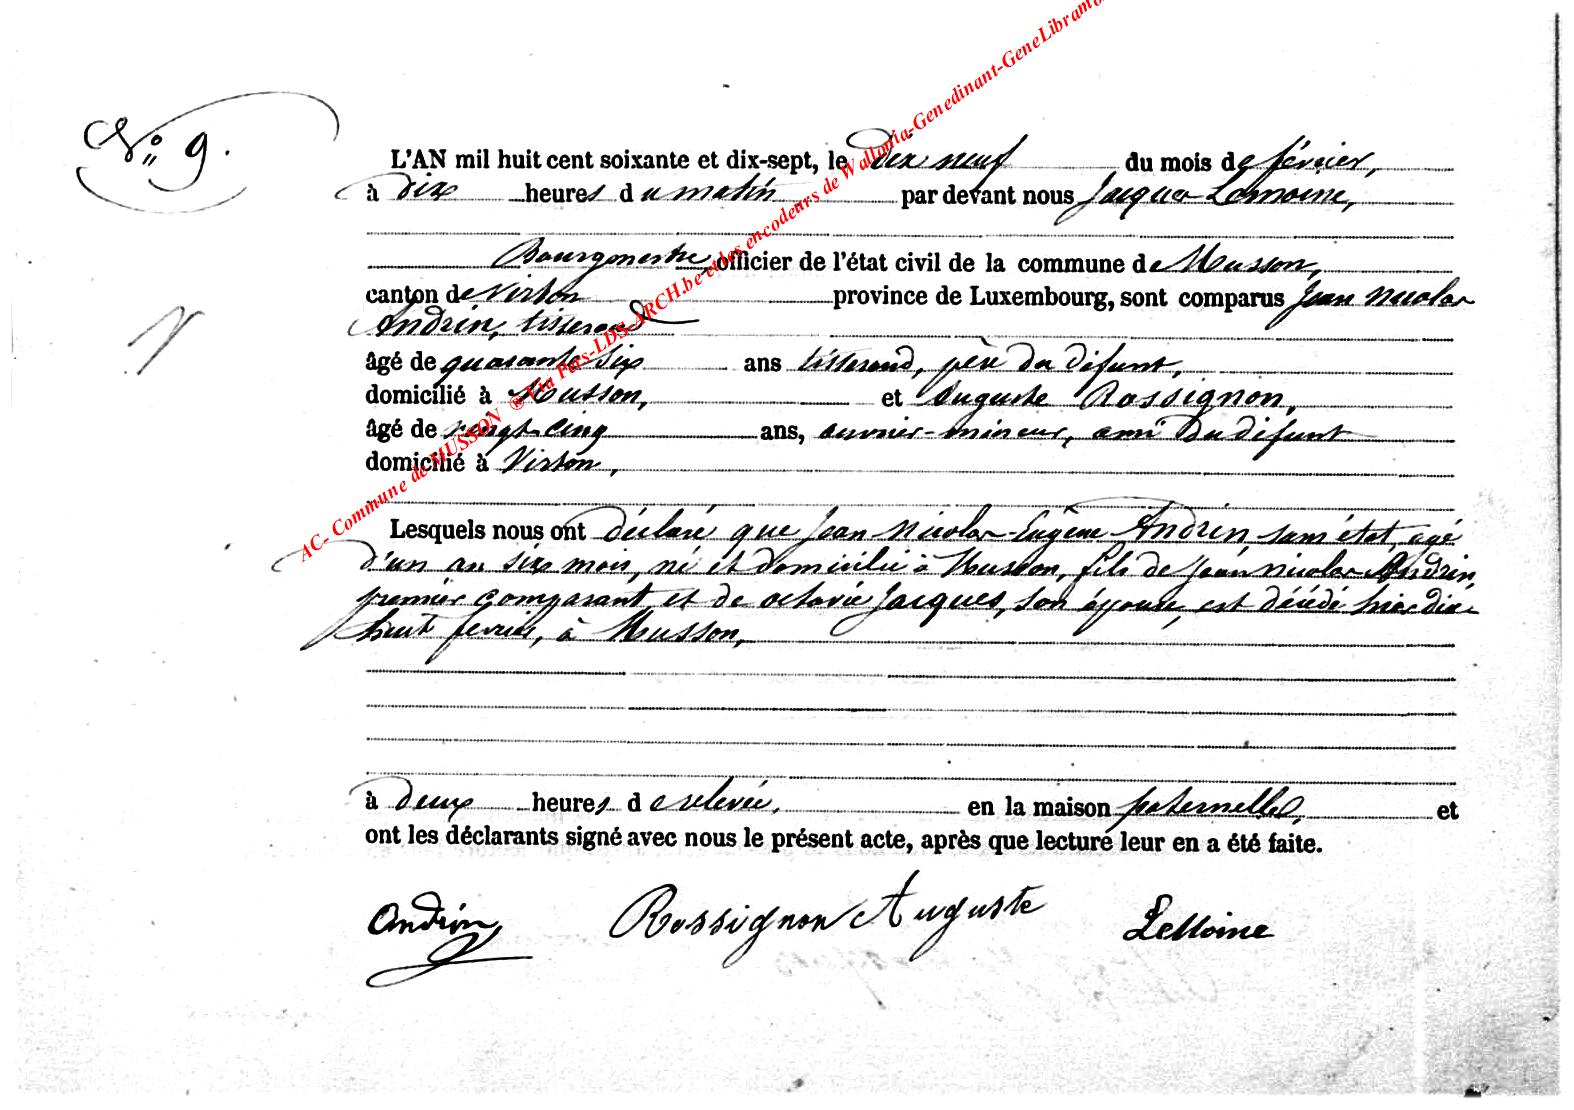 AC- Commune de MUSSON ® Via Pars-LDS-ARCH.be et les encodeurs de Wallonia-Genedinant-GeneLibramo
N° 9.
L'AN mil huit cent soixante et dix-sept, le dix neuf du mois de février,
à dix heures du matin par devant nous Jacques Lemoine,
Bourgmestre, officier de l'état civil de la commune de Musson,
canton de Virton province de Luxembourg, sont comparus Jean Nicolas
Andrin, tisserand
âgé de quarante-six ans tisserand, père du défunt,
domicilié à Musson, et Auguste Rossignon,
âgé de vingt-cinq ans, ouvrier-mineur, ami du défunt
domicilié à Virton,
Lesquels nous ont déclaré que Jean Nicolas-Eugène Andrin, sans état, agé
d'un an six mois, né et domicilié à Musson, fils de Jean Nicolas Andrin,
premier comparant et de octavie Jacques, son épouse, est décédé hier dix-
huit fevrier, à Musson,
à deux heures de relevée, en la maison paternelle, et
ont les déclarants signé avec nous le présent acte, après que lecture leur en a été faite.
Andrin Rossignon Auguste LeMoine